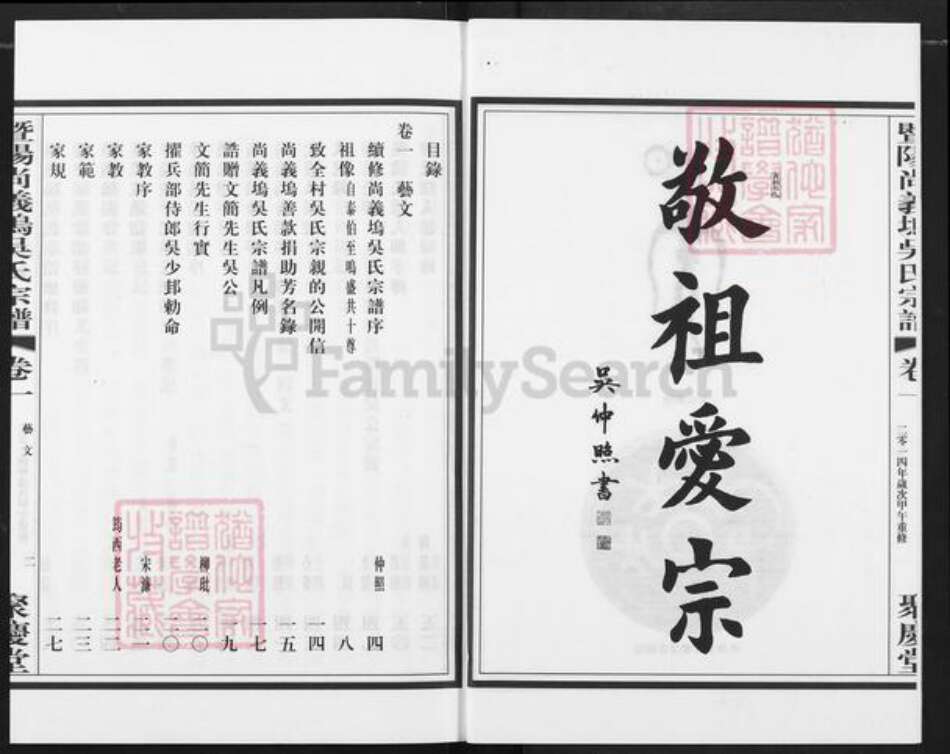 暨陽尚義塢吳氏宗譜
卷一
二零一四年歲次甲午重修
聚慶堂
敬祖愛宗
吳仲照書
目錄
卷一 藝文
續修尚義塢吳氏宗譜序 仲照 四
祖像自泰伯至鳴盛共十尊 八
致全村吳氏宗親的公開信 一四
尚義塢善款捐助芳名錄 一五
尚義塢吳氏宗譜凡例 一七
誥贈文簡先生吳公 一九
文簡先生行實 柳玭 二〇
擢兵部侍郎吳少邦勅命 二〇
家教序 宋濂 二一
家教 筠西老人 二二
家範 二三
家規 二七
暨陽尚義塢吳氏宗譜
卷一
藝文
二
聚慶堂
FamilySearch